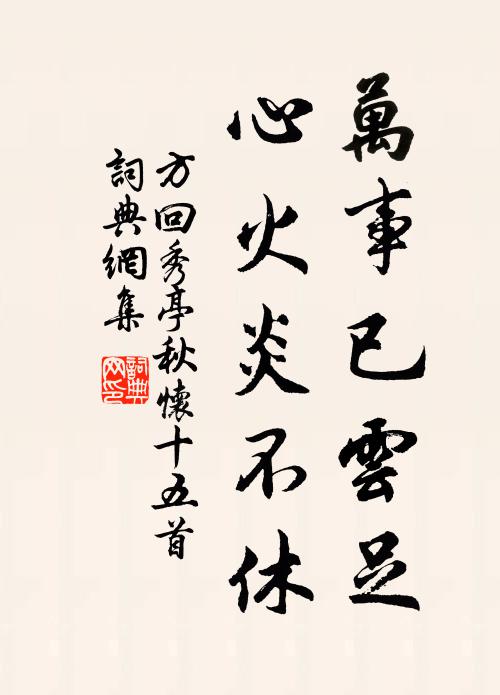 萬事已雲足
心火炎不休
方回秀亭秋懷十五首
詞典網集
詞典網印